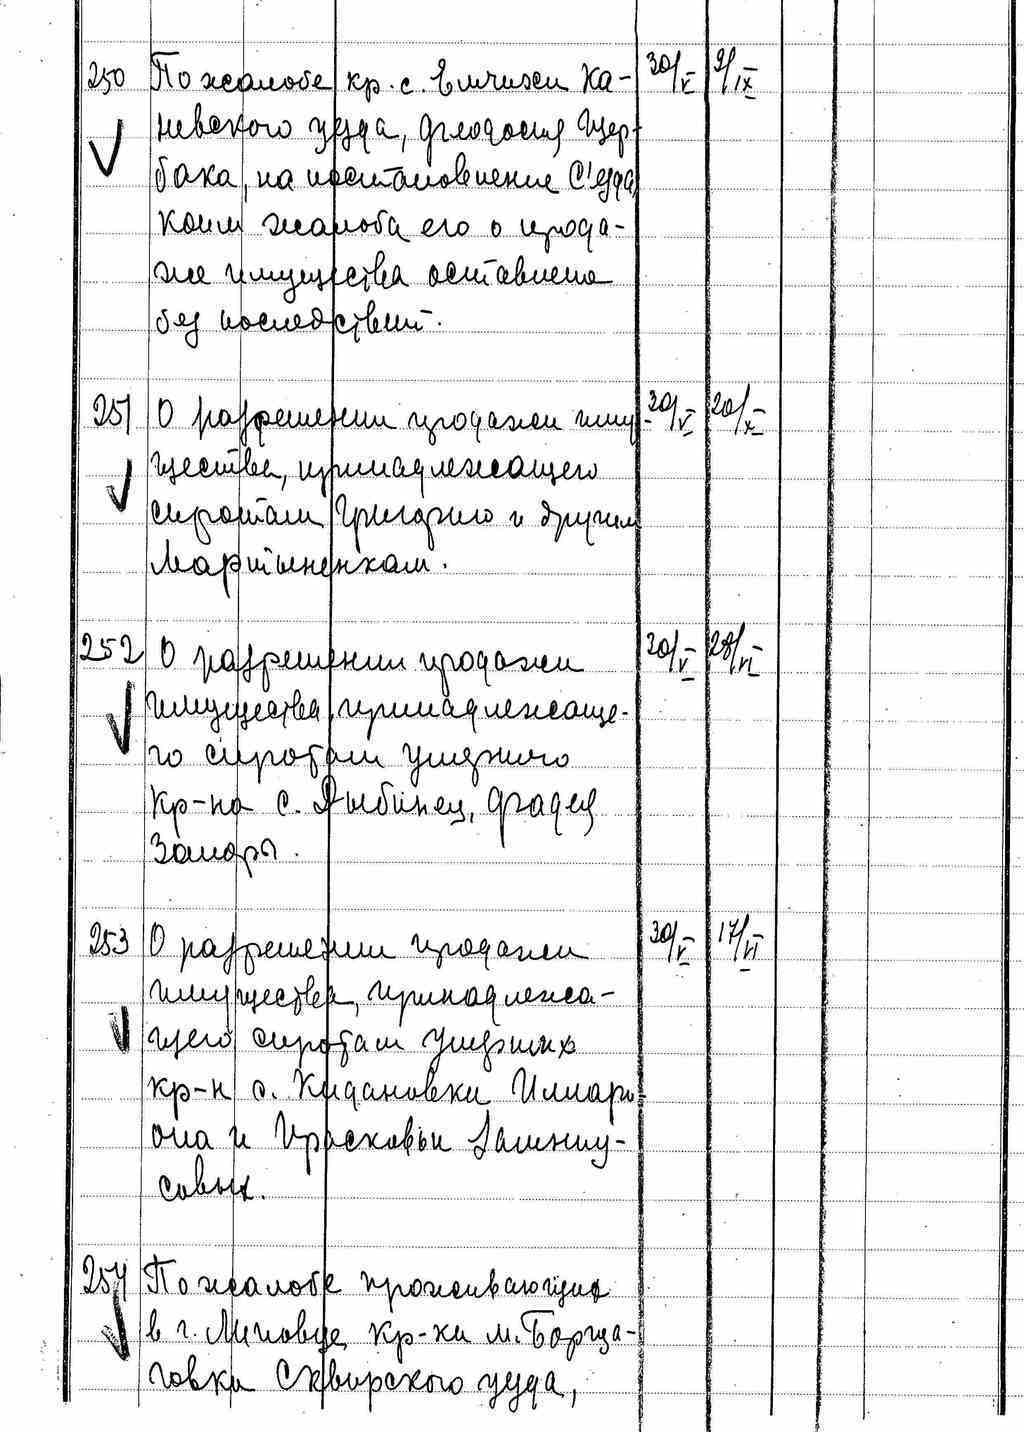 250 По жалобе кр. с. Емчихи Ка- 30/V 9/IX
невского уезда, Феодосия Щер-
бака, на постановление С'езда,
коим жалоба его о прода-
же имущества оставлена
без последствий.
251 О разрешении продажи иму- 30/V 20/X
щества, принадлежащего
сиротам Григорию и другим
Мартыненкам.
252 О разрешении продажи 30/V 28/VI
имущества, принадлежаще-
го сиротам умершего
кр-на с. Рыбинец, Фадея
253 О разрешении продажи 30/V 17/VI
имущества, принадлежа-
щего сиротам умерших
кр-н с. Кидановки Иллари-
она и Прасковьи
совых.
254 По жалобе проживающих
в г. Липовце кр-ки м. Борща-
говки Сквирского уезда,